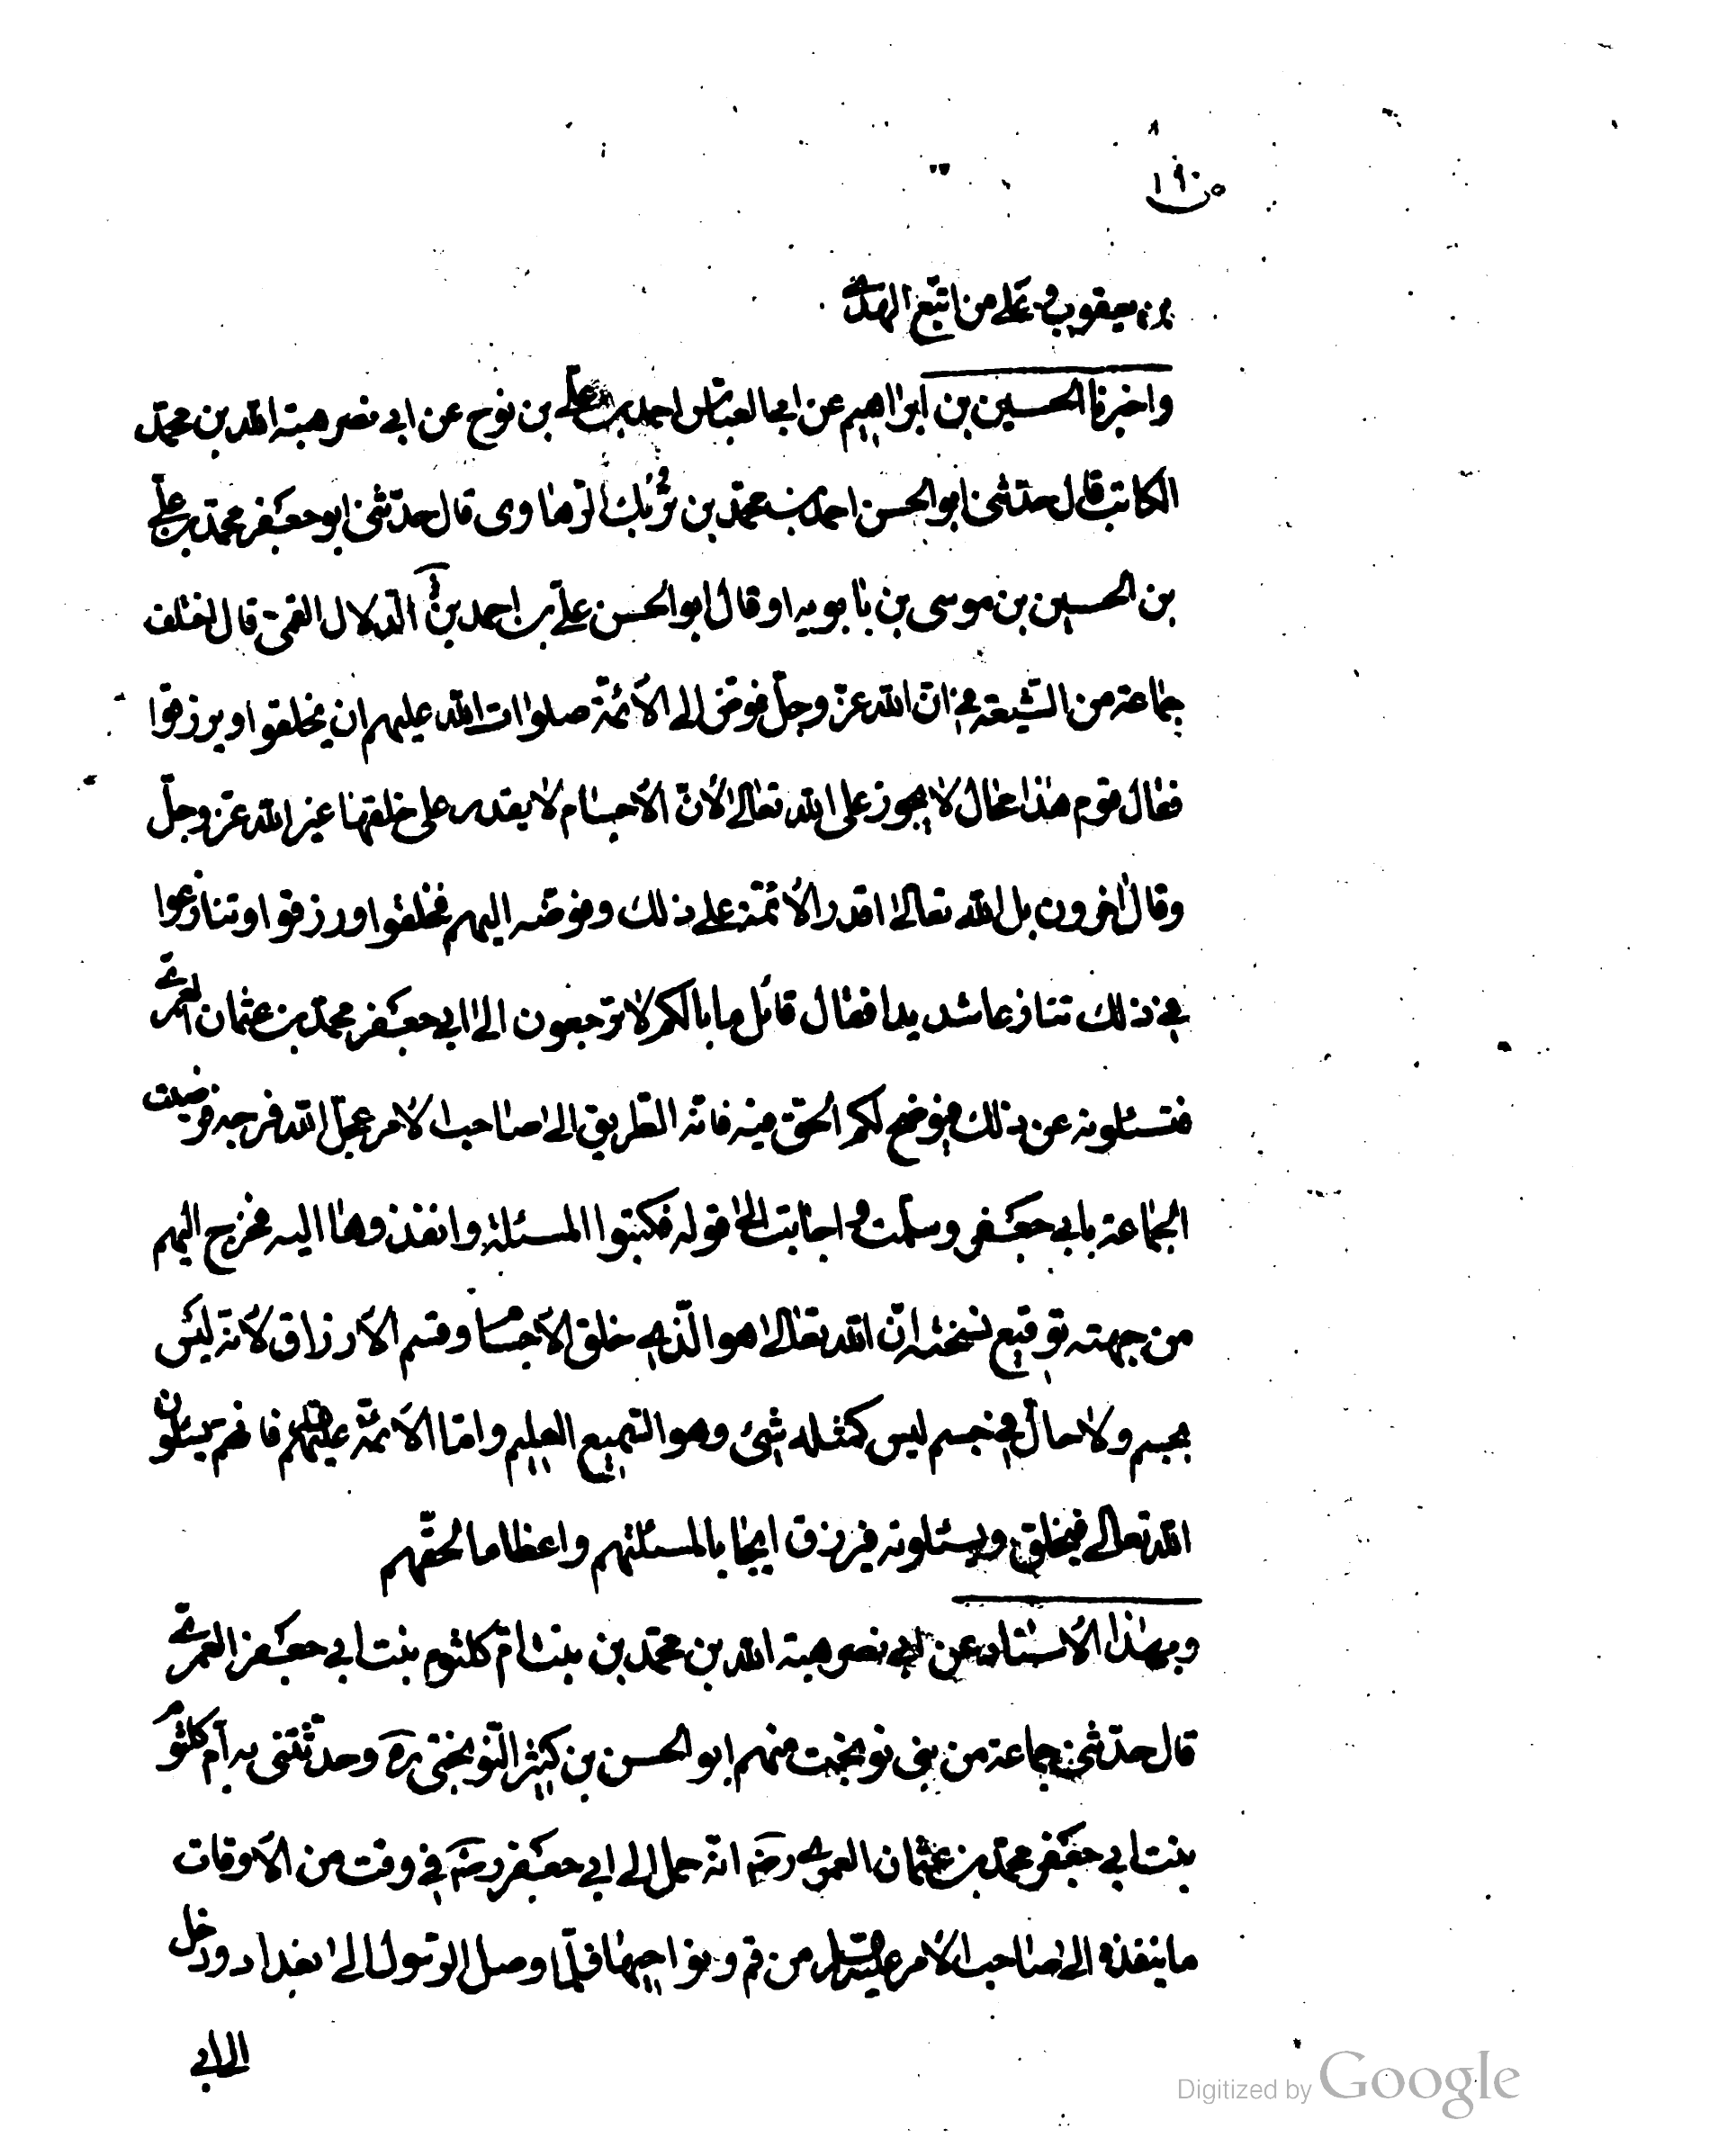 ١٩٠
بن يعقوب و على من اتبع الهدى
واخبرنا الحسين بن ابراهيم عن ابى العباس احمد بن على بن نوح عن ابي نصر هبة الله بن محمد
الكاتب قال حدثني ابو الحسن احمد بن محمد بن تربك الرهاوى قال حدثني ابو جعفر محمد بن على
بن الحسين بن موسى بن بابويه او قال ابو الحسن على بن احمد بن الدلال القمى قال اختلف
جماعة من الشيعة في ان الله عز وجل فوض الى الأئمة صلوات الله عليهم ان يخلقوا و يرزقوا
فقال قوم هذا محال لا يجوز على الله تعالى لأن الأجسام لا يقدر على خلقها غير الله عز وجل
وقال اخرون بل الله تعالى اقدر الأئمة على ذلك وفوضه اليهم فخلقوا ورزقوا وتنازعوا
في ذلك تنازعا شديدا فقال قائل ما بالكم لا ترجعون الى ابي جعفر محمد بن عثمان العمرى
فتسئلونه عن ذلك فيوضح لكم الحق فيه فانه الطريق الى صاحب الأمر عجل الله فرجه فرضيت
الجماعة بابي جعفر وسلمت و اجابت الى قوله فكتبوا المسئلة وانفذوها اليه فخرج اليهم
من جهته توقيع نسخته ان الله تعالى هو الذي خلق الأجسام وقسم الأرزاق لأنه ليس
بجسم ولا حال في جسم ليس كمثله شئ وهو السميع العليم واما الأئمة عليهم فانهم يسئلون
الله تعالى فيخلق ويسئلونه فيرزق ايجابا لمسئلتهم واعظاما لحقهم
وبهذا الأسناد عن ابي نصر هبة الله بن محمد بن بنت ام كلثوم بنت ابي جعفر العمرى
قال حدثني جماعة من بني نوبخت منهم ابو الحسن بن كثير النوبختى ره وحدثتنى به ام كلثوم
بنت ابي جعفر محمد بن عثمان العمرى رضه انه حمل الى ابي جعفر رضه في وقت من الأوقات
ما ينفذه الى صاحب الأمر عليه السلام من قم ونواحيها فلما وصل الرسول الى بغداد ودخل
الى ابي
Digitized by Google